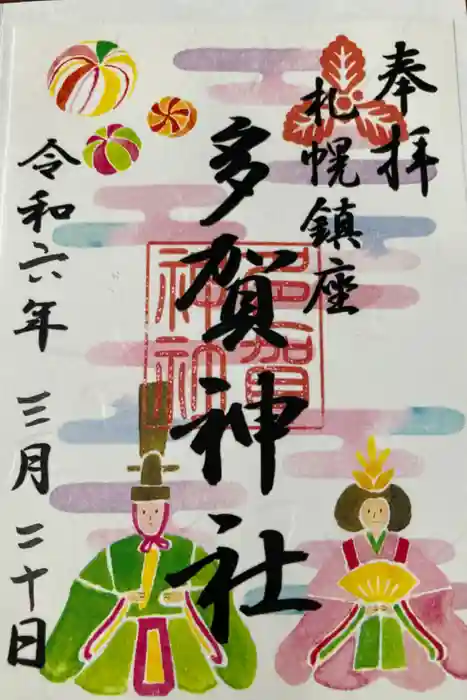 奉拝
札幌鎮座
多賀神社
多賀
神社
令和六年 三月 二十日